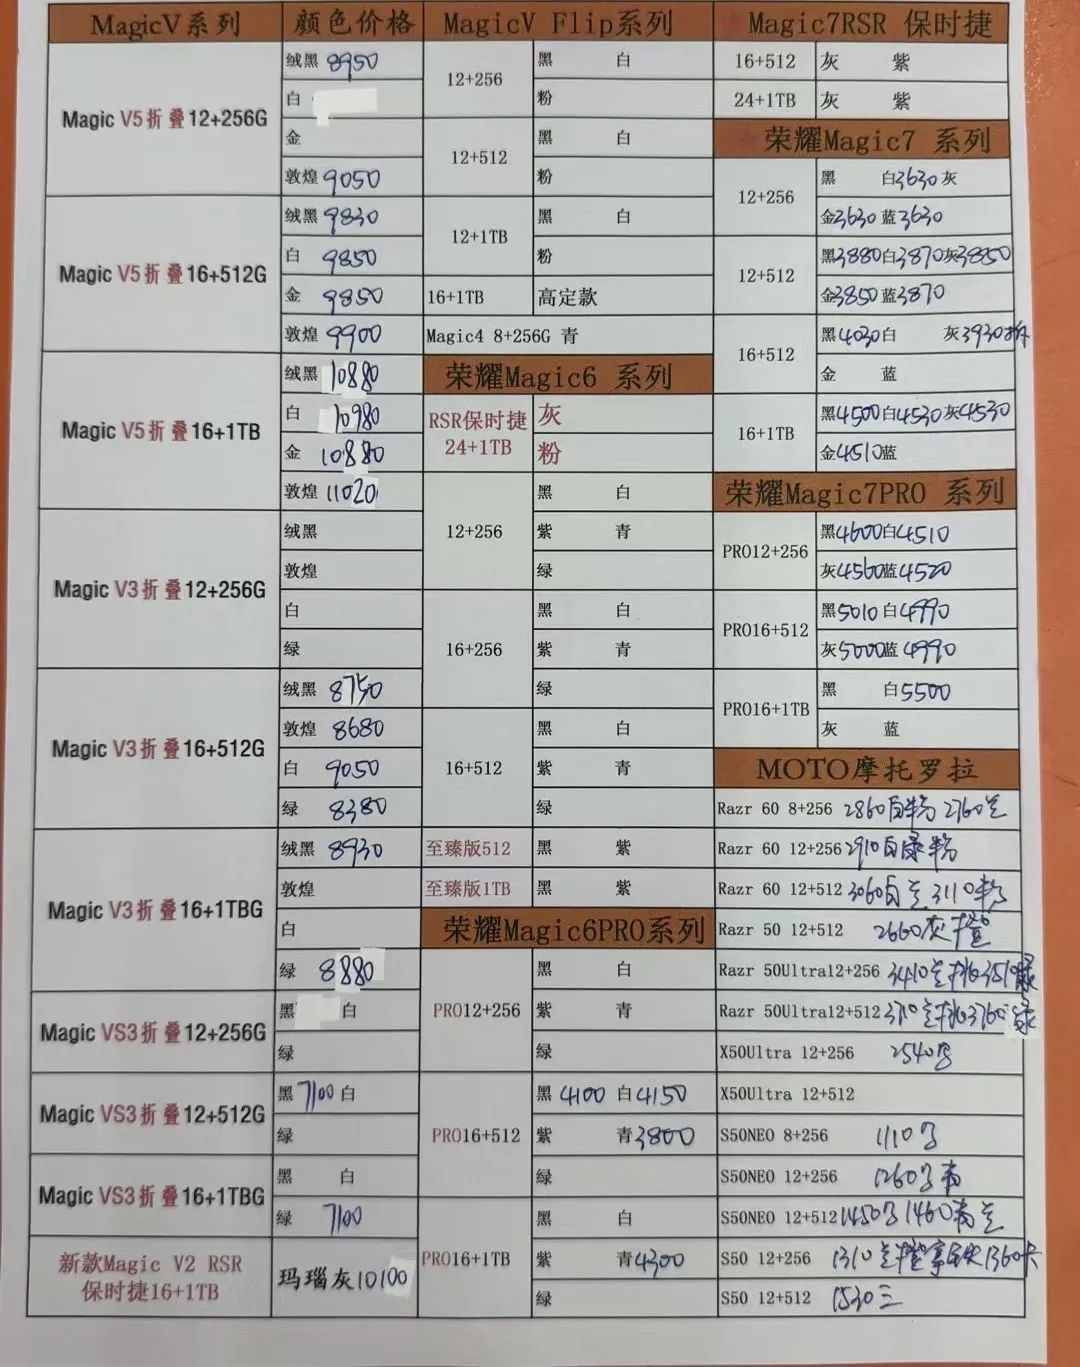 MagicV系列 颜色价格
Magic V5折叠12+256G
绒黑 8950
白
金
敦煌 9050
Magic V5折叠16+512G
绒黑 9830
白 9850
金 9850
敦煌 9900
Magic V5折叠16+1TB
绒黑 10880
白 10980
金 10880
敦煌 11020
Magic V3折叠12+256G
绒黑
敦煌
白
绿
Magic V3折叠16+512G
绒黑 8750
敦煌 8680
白 9050
绿 8380
Magic V3折叠16+1TBG
绒黑 8930
敦煌
白
绿 8880
Magic VS3折叠12+256G
黑 白
绿
Magic VS3折叠12+512G
黑7100 白
绿
Magic VS3折叠16+1TBG
黑 白
绿 7100
新款Magic V2 RSR
保时捷16+1TB
玛瑙灰10100
MagicV Flip系列
12+256
黑 白
粉
12+512
黑 白
粉
12+1TB
黑 白
粉
16+1TB 高定款
Magic4 8+256G 青
荣耀Magic6 系列
RSR保时捷
24+1TB
灰
粉
12+256
黑 白
紫 青
绿
16+256
黑 白
紫 青
绿
16+512
黑 白
紫 青
绿
至臻版512 黑 紫
至臻版1TB 黑 紫
荣耀Magic6PRO系列
PRO12+256
黑 白
紫 青
绿
PRO16+512
黑 4100 白4150
紫 青3800
绿
PRO16+1TB
黑 白
紫 青4300
绿
Magic7RSR 保时捷
16+512 灰 紫
24+1TB 灰 紫
荣耀Magic7 系列
12+256
黑 白3630灰
金3630 蓝3630
12+512
黑3880白3870灰3850
金3850蓝3870
16+512
黑4030白 灰3930
金 蓝
16+1TB
黑4500白4530灰4530
金4510蓝
荣耀Magic7PRO 系列
PRO12+256
黑4600白4510
灰4560蓝4520
PRO16+512
黑5010白4990
灰5000蓝4990
PRO16+1TB
黑 白5500
灰 蓝
MOTO摩托罗拉
Razr 60 8+256 2860白粉 2760
Razr 60 12+256 2910白绿粉
Razr 60 12+512 3060白 3110粉
Razr 50 12+512 2660灰橙
Razr 50Ultra12+256 3410 3510绿
Razr 50Ultra12+512 3760绿
X50Ultra 12+256 2540
X50Ultra 12+512
S50NEO 8+256 1110
S50NEO 12+256 1260
S50NEO 12+512 1450 1460
S50 12+256 1310 1360
S50 12+512 1530三